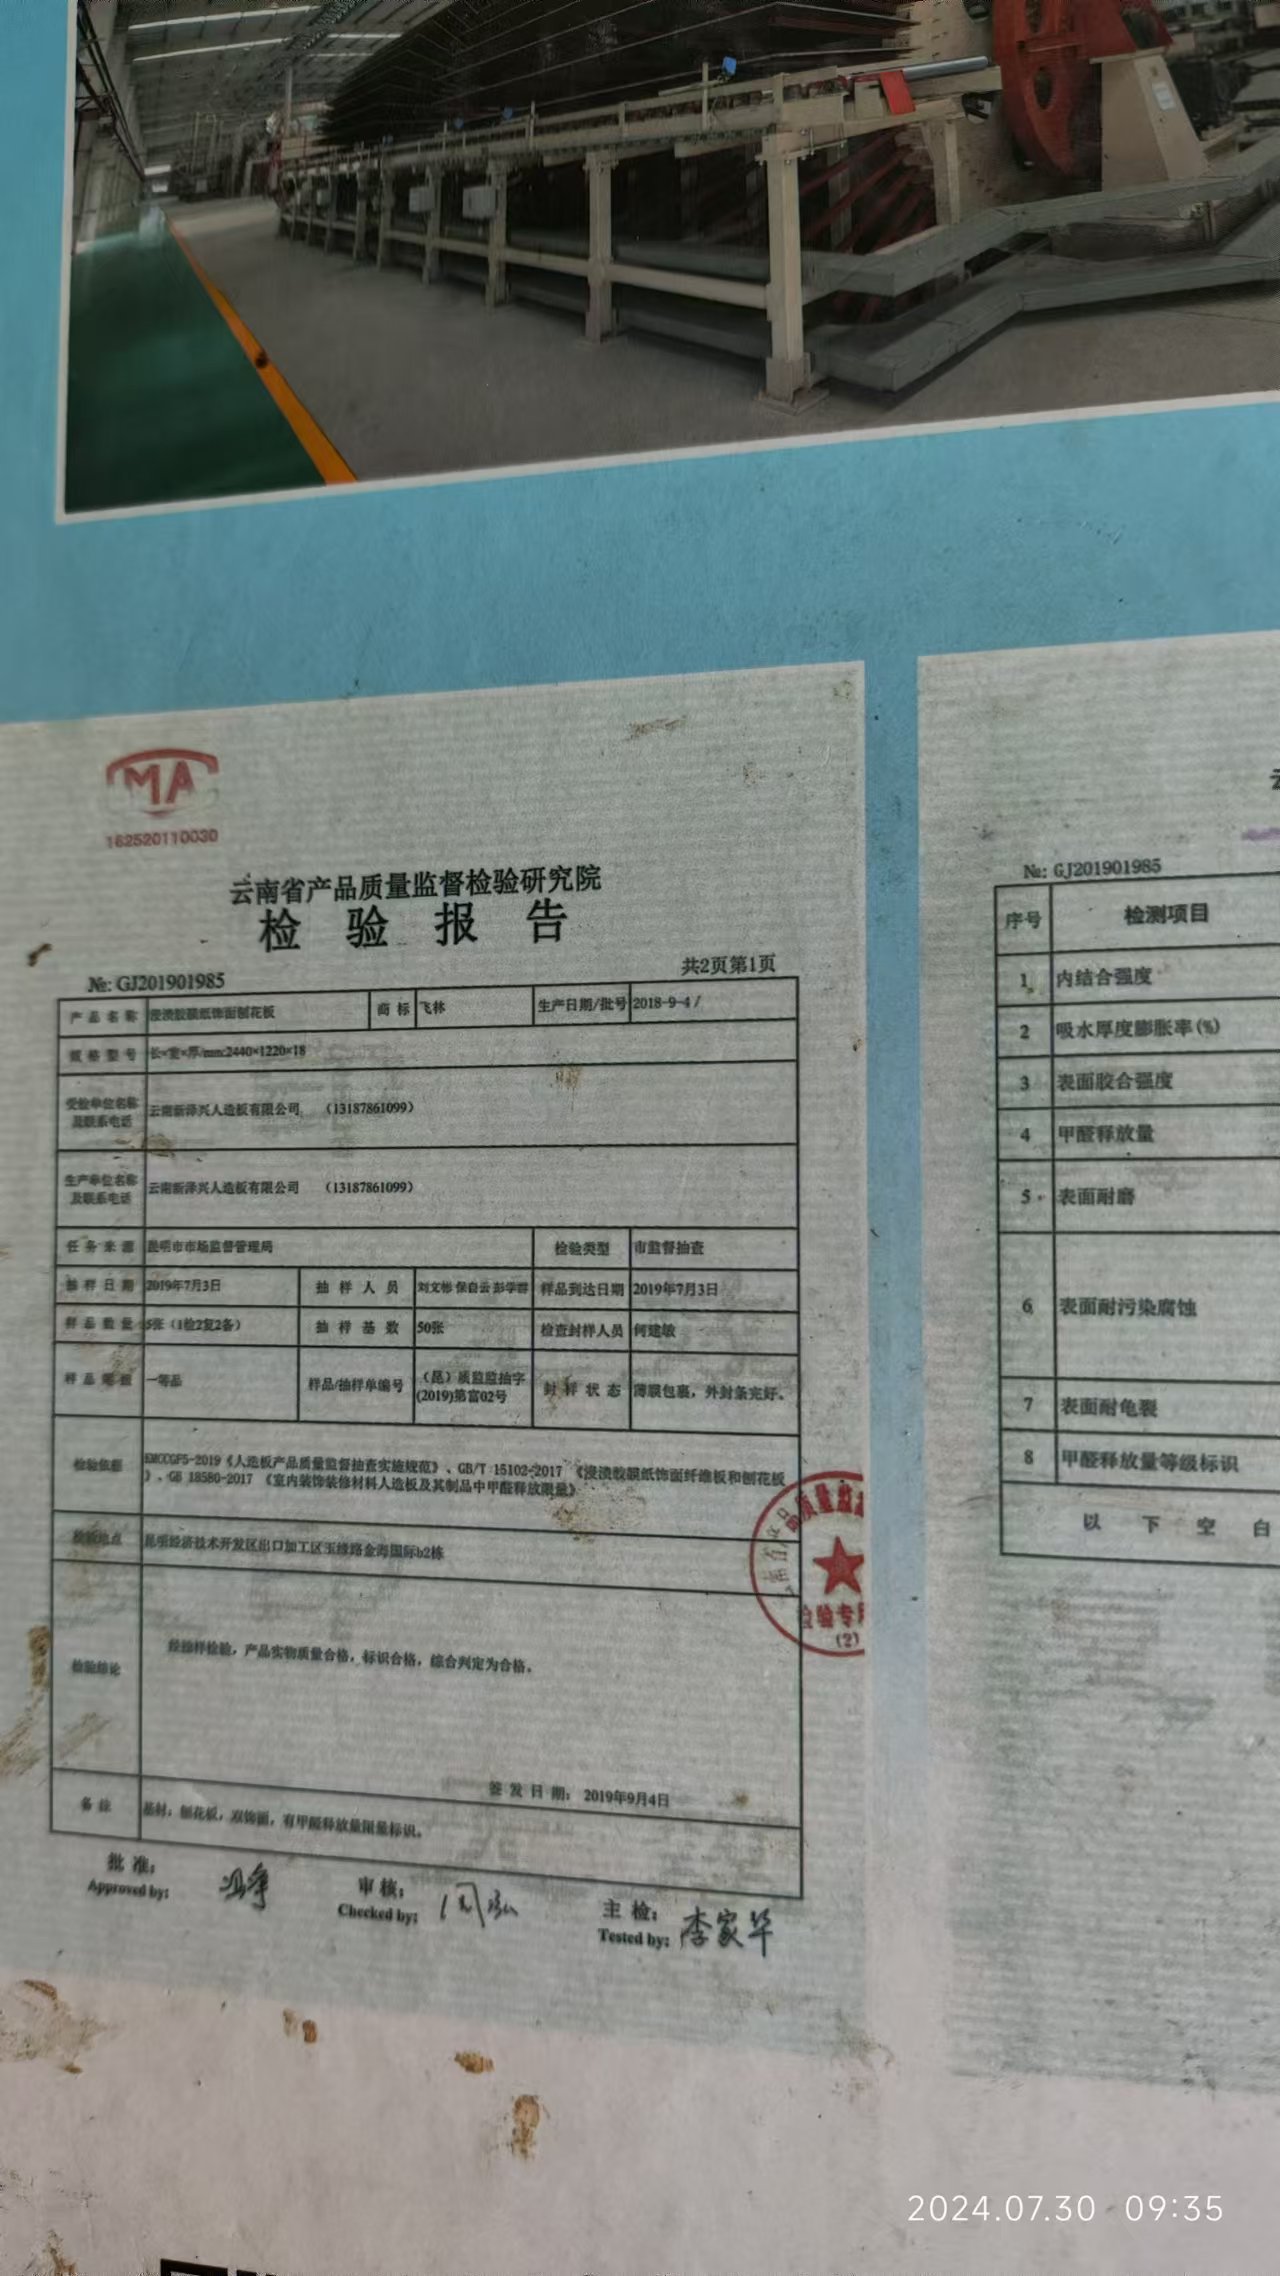 MA
162520110030
云南省产品质量监督检验研究院
检 验 报 告
№: GJ201901985
共2页第1页
产品名称 浸渍胶膜纸饰面刨花板 商标 飞林 生产日期/批号 2018-9-4 /
规格型号 长×宽×厚/mm:2440×1220×18
受检单位名称及联系电话 云南新泽兴人造板有限公司 （13187861099）
生产单位名称及联系电话 云南新泽兴人造板有限公司 （13187861099）
任务来源 昆明市市场监督管理局 检验类型 市监督抽查
抽样日期 2019年7月3日 抽样人员 刘文彬 保自云 彭学群 样品到达日期 2019年7月3日
样品数量 5张（1检2复2备） 抽样基数 50张 检查封样人员 何建敏
样品等级 一等品 样品/抽样单编号 （昆）质监监抽字
(2019)第富02号 封样状态 薄膜包裹，外封条完好。
检验依据 KMCCGF5-2019《人造板产品质量监督抽查实施规范》、GB/T 15102-2017 《浸渍胶膜纸饰面纤维板和刨花板
》、GB 18580-2017 《室内装饰装修材料人造板及其制品中甲醛释放限量》
检验地点 昆明经济技术开发区出口加工区玉缘路金海国际b2栋
检验结论 经抽样检验，产品实物质量合格，标识合格，综合判定为合格。
签发日期： 2019年9月4日
备注 基材：刨花板，双饰面，有甲醛释放量限量标识。
批准：
Approved by:
审核：
Checked by:
主检：
Tested by: 李家华
质量监
检验专用
(2)
№: GJ201901985
序号 检测项目
1 内结合强度
2 吸水厚度膨胀率(%)
3 表面胶合强度
4 甲醛释放量
5 表面耐磨
6 表面耐污染腐蚀
7 表面耐龟裂
8 甲醛释放量等级标识
以 下 空 白
2024.07.30 09:35